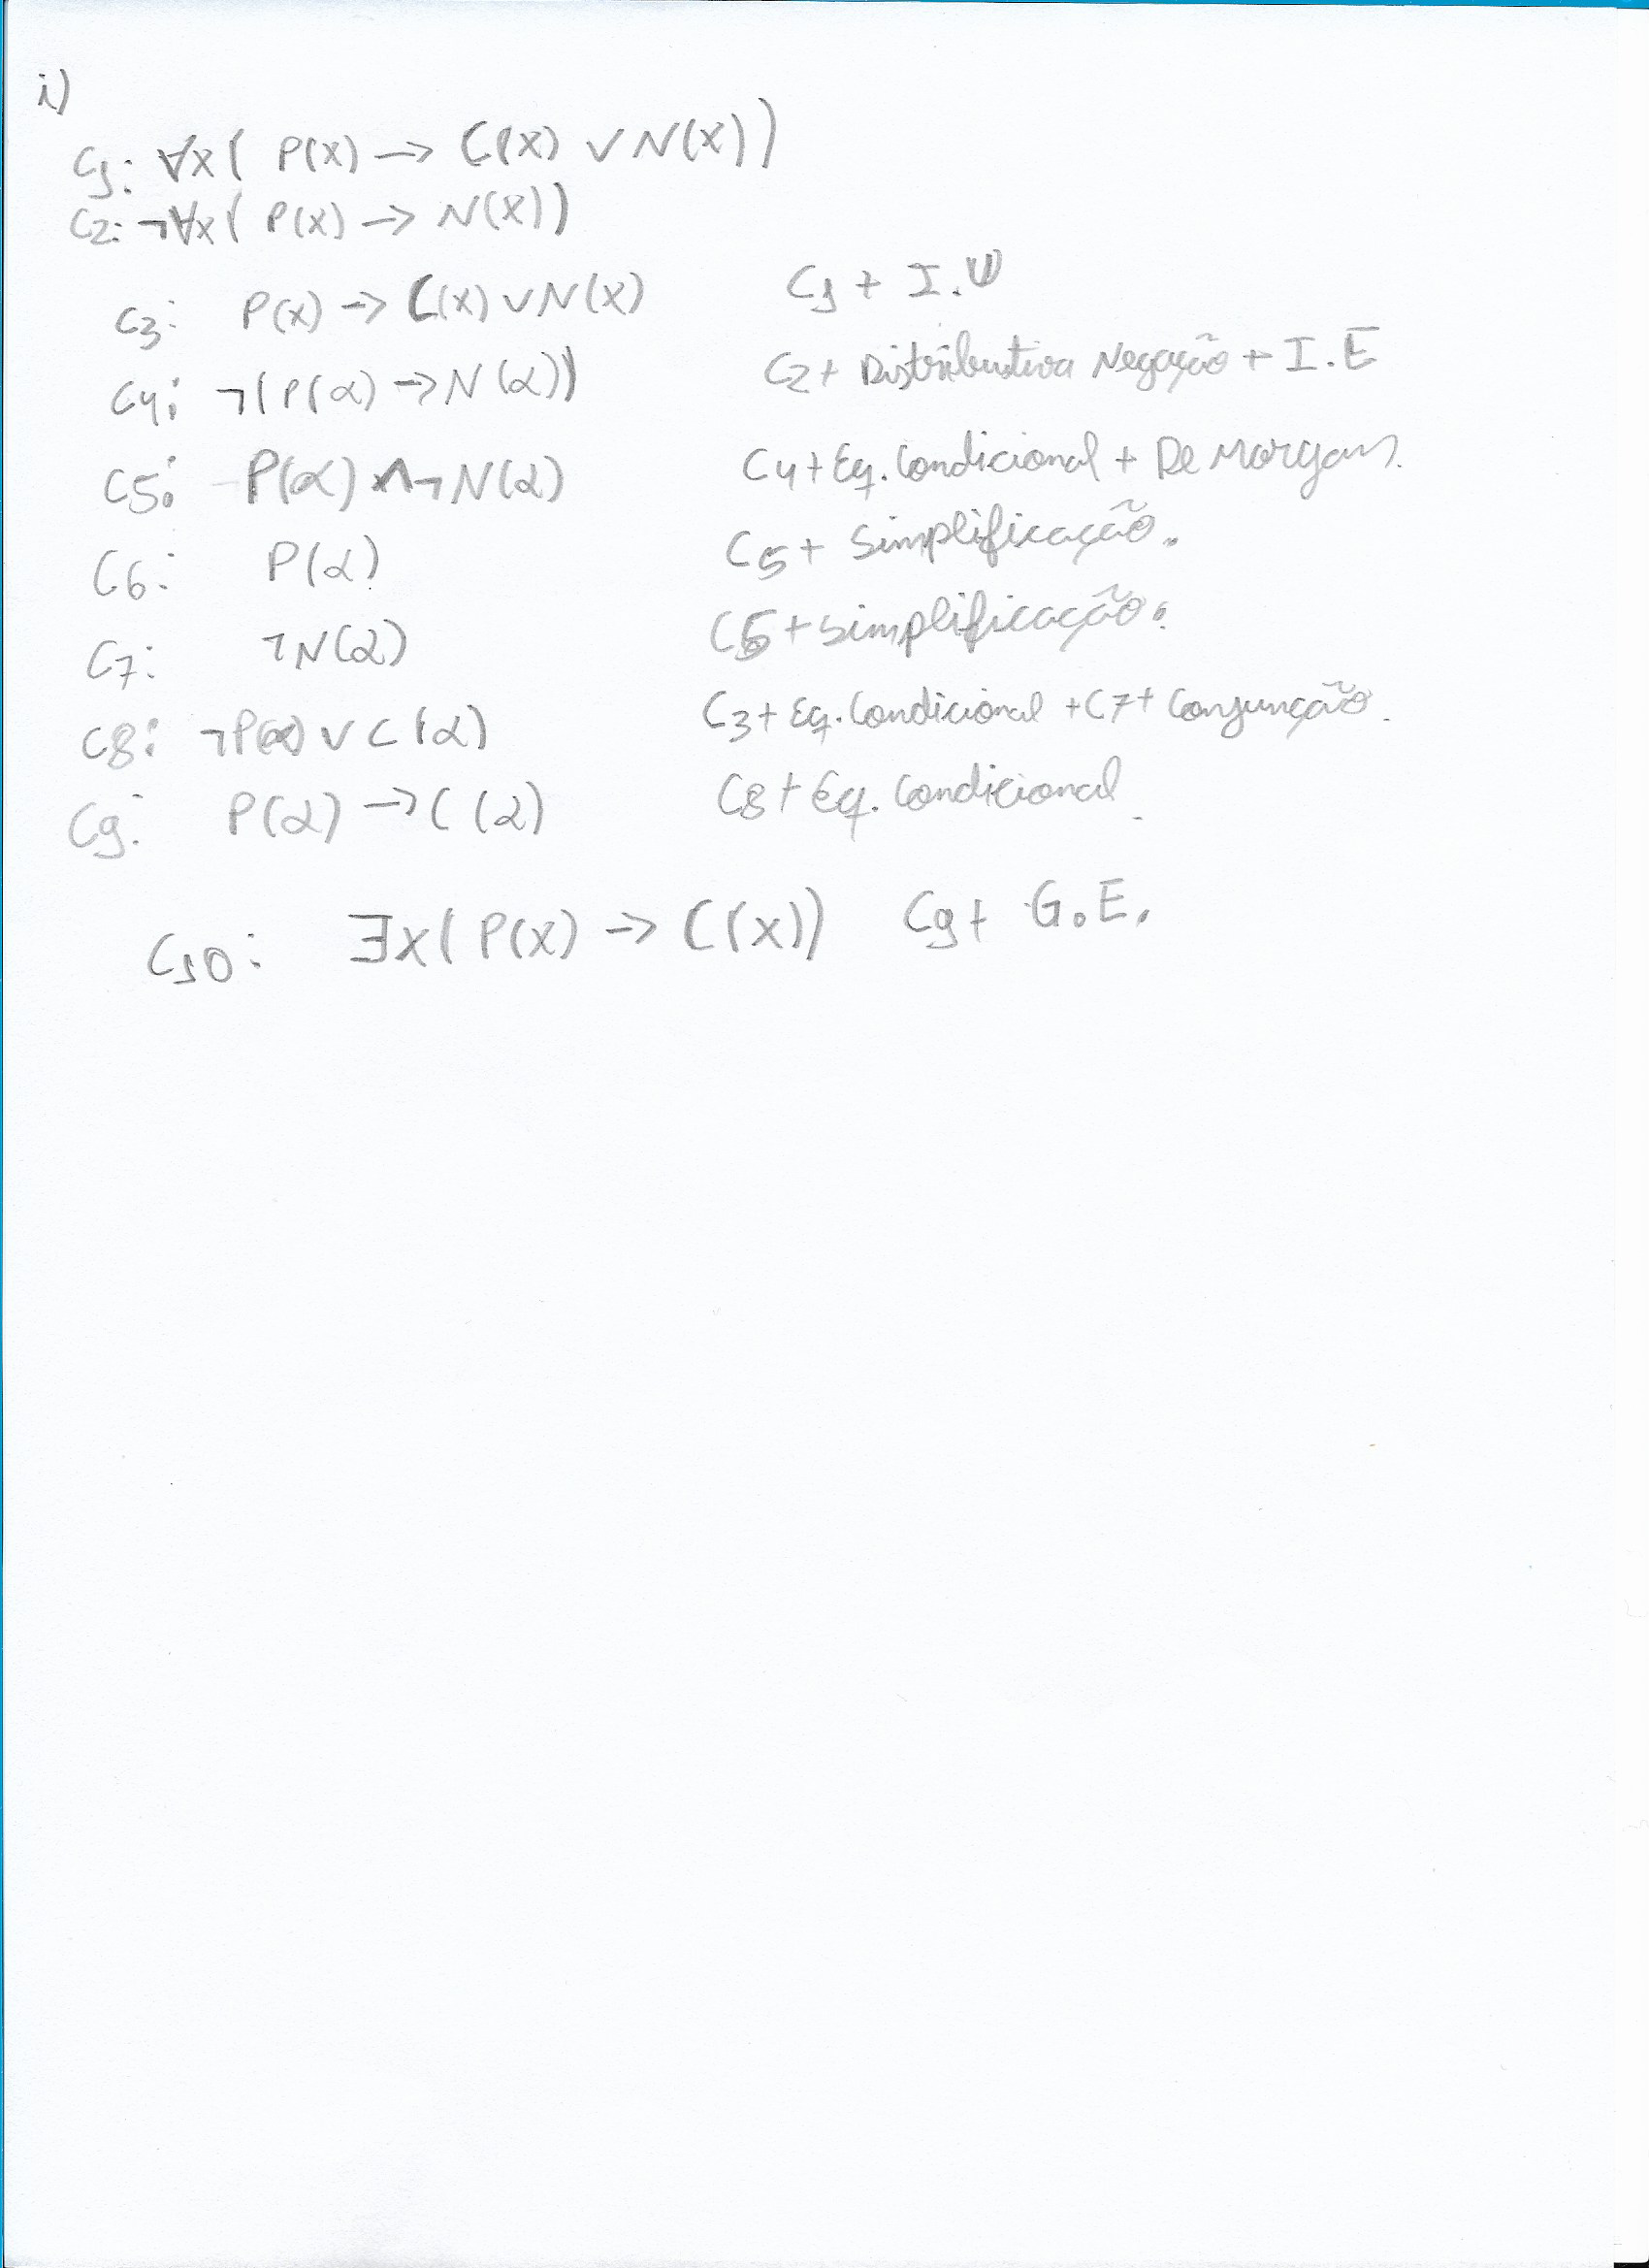 i)
C1: ∀x( P(x) → C(x) ∨ N(x))
C2: ¬∀x( P(x) → N(x))
C3: P(x) → C(x) ∨ N(x) C1 + I.U
C4: ¬(P(α) → N(α)) C2 + Distributiva Negação + I.E
C5: P(α) ∧ ¬N(α) C4 + Eq. Condicional + De Morgan.
C6: P(α) C5 + Simplificação.
C7: ¬N(α) C5 + Simplificação.
C8: ¬P(α) ∨ C(α) C3 + Eq. Condicional + C7 + Conjunção.
C9: P(α) → C(α) C8 + Eq. Condicional.
C10: ∃x( P(x) → C(x)) C9 + G.E.